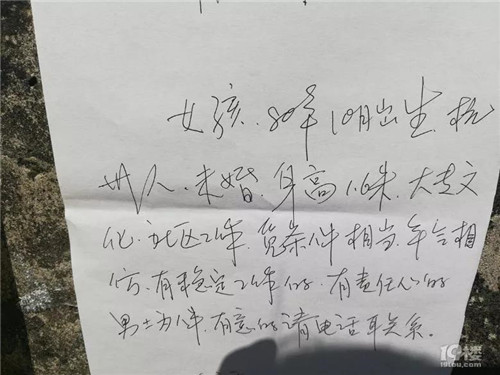 女孩.80年10月出生.杭
州人.未婚.身高1.6米.大专文
化.社区工作.觅条件相当.年令相
仿.有稳定工作的.有责任心的
男士为伴.有意的请电话耳关系.
19楼
19lou.com